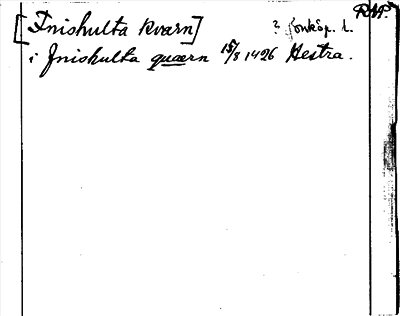 [Fniskulta kvarn] ? Jönköp. l. RAP.
i Fniskulta quærn 15/8 1426 Hestra.